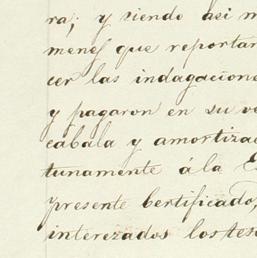 ra; y siendo asi m
menes que reportar
cer las indagacione
y pagaron en su ve
cabala y amortizac
tunamente á la E
presente bertificado,
interezados los tes